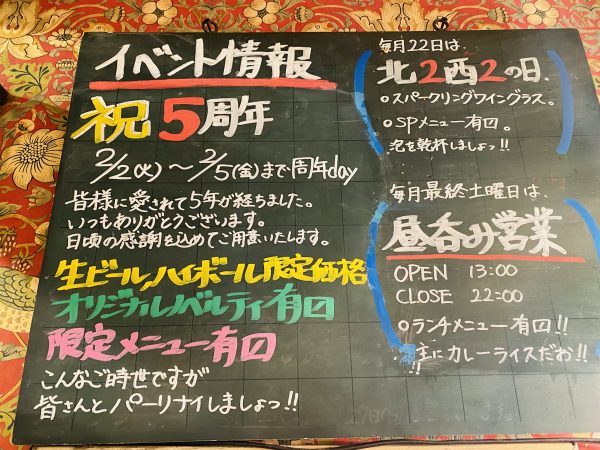 イベント情報
祝5周年
2/2(火)～2/5(金)まで周年day
皆様に愛されて5年が経ちました。
いつもありがとうございます。
日頃の感謝を込めてご用意いたします。
生ビール,ハイボール限定価格
オリジナルノベルティ有口
限定メニュー有口
こんなご時世ですが
皆さんとパーリナイしましょっ!!
毎月22日は、
北2西2の日、
○スパークリングワイングラス。
○SPメニュー有口。
泡を乾杯しましょっ!!
毎月最終土曜日は、
昼呑み営業
OPEN 13:00
CLOSE 22:00
○ランチメニュー有口!!
主にカレーライスだお!!